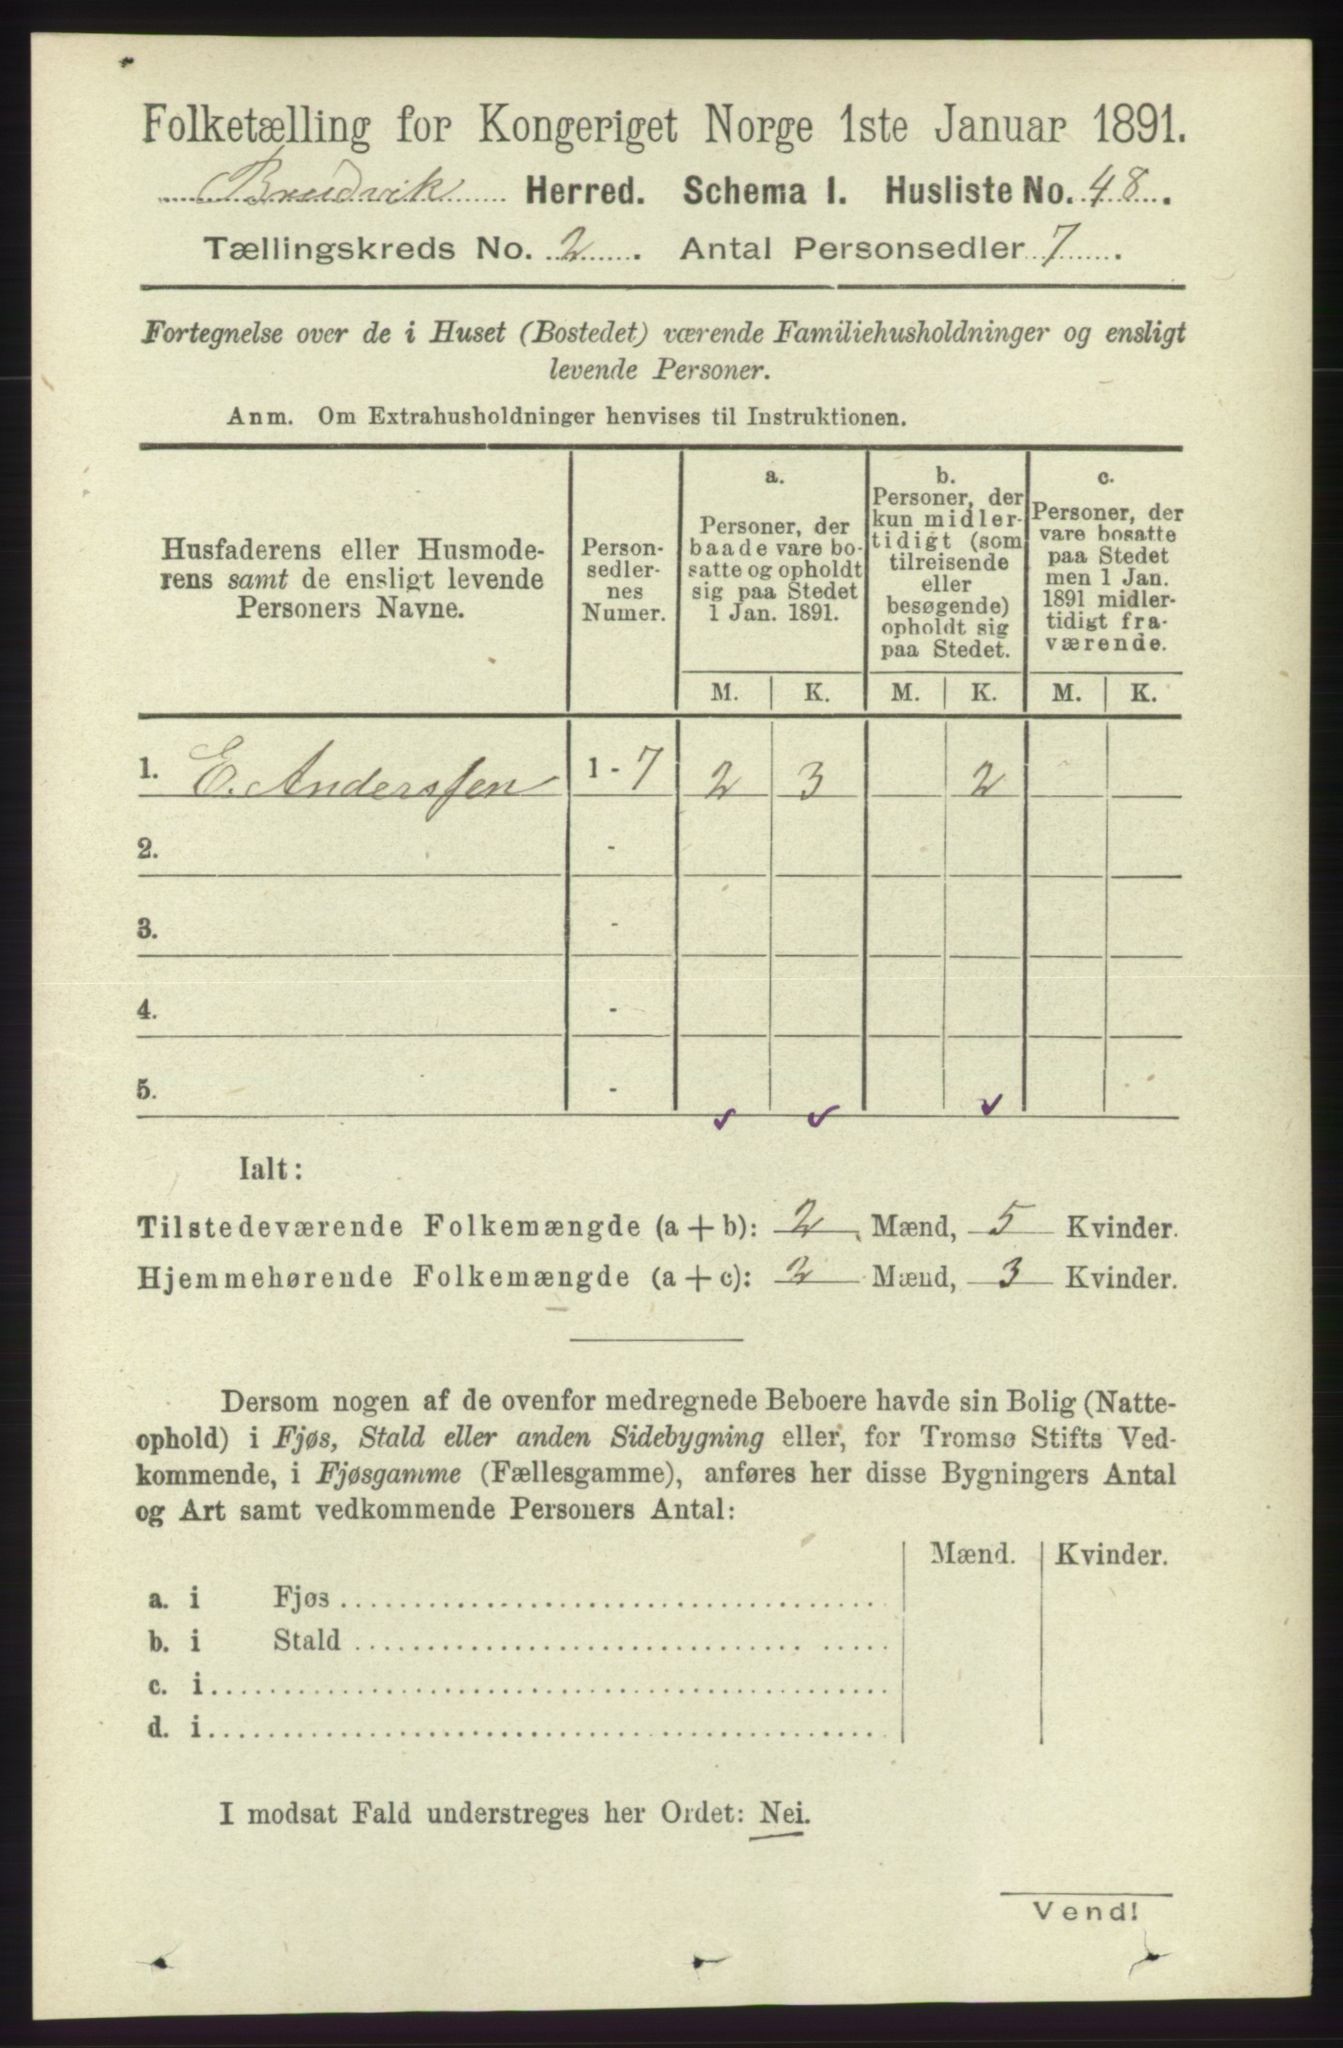 Folketælling for Kongeriget Norge 1ste Januar 1891.
Brudvik Herred. Schema I. Husliste No. 48.
Tællingskreds No. 2. Antal Personsedler 7.
Fortegnelse over de i Huset (Bostedet) værende Familiehusholdninger og ensligt
levende Personer.
Anm. Om Extrahusholdninger henvises til Instruktionen.
Husfaderens eller Husmode-
rens samt de ensligt levende
Personers Navne.
Person-
sedler-
nes
Numer.
a.
Personer, der
baade vare bo-
satte og opholdt
sig paa Stedet
1 Jan. 1891.
b.
Personer, der
kun midler-
tidigt (som
tilreisende
eller
besøgende)
opholdt sig
paa Stedet.
c.
Personer, der
vare bosatte
paa Stedet
men 1 Jan.
1891 midler-
tidigt fra-
værende.
M. K. M. K. M. K.
1. E. Anderssen 1 - 7 2 3 2
2. -
3. -
4. -
5. -
Ialt:
Tilstedeværende Folkemængde (a + b): 2 Mænd, 5 Kvinder.
Hjemmehørende Folkemængde (a + c): 2 Mænd, 3 Kvinder.
Dersom nogen af de ovenfor medregnede Beboere havde sin Bolig (Natte-
ophold) i Fjøs, Stald eller anden Sidebygning eller, for Tromsø Stifts Ved-
kommende, i Fjøsgamme (Fællesgamme), anføres her disse Bygningers Antal
og Art samt vedkommende Personers Antal:
Mænd. Kvinder.
a. i Fjøs
b. i Stald
c. i
d. i
I modsat Fald understreges her Ordet: Nei.
Vend!